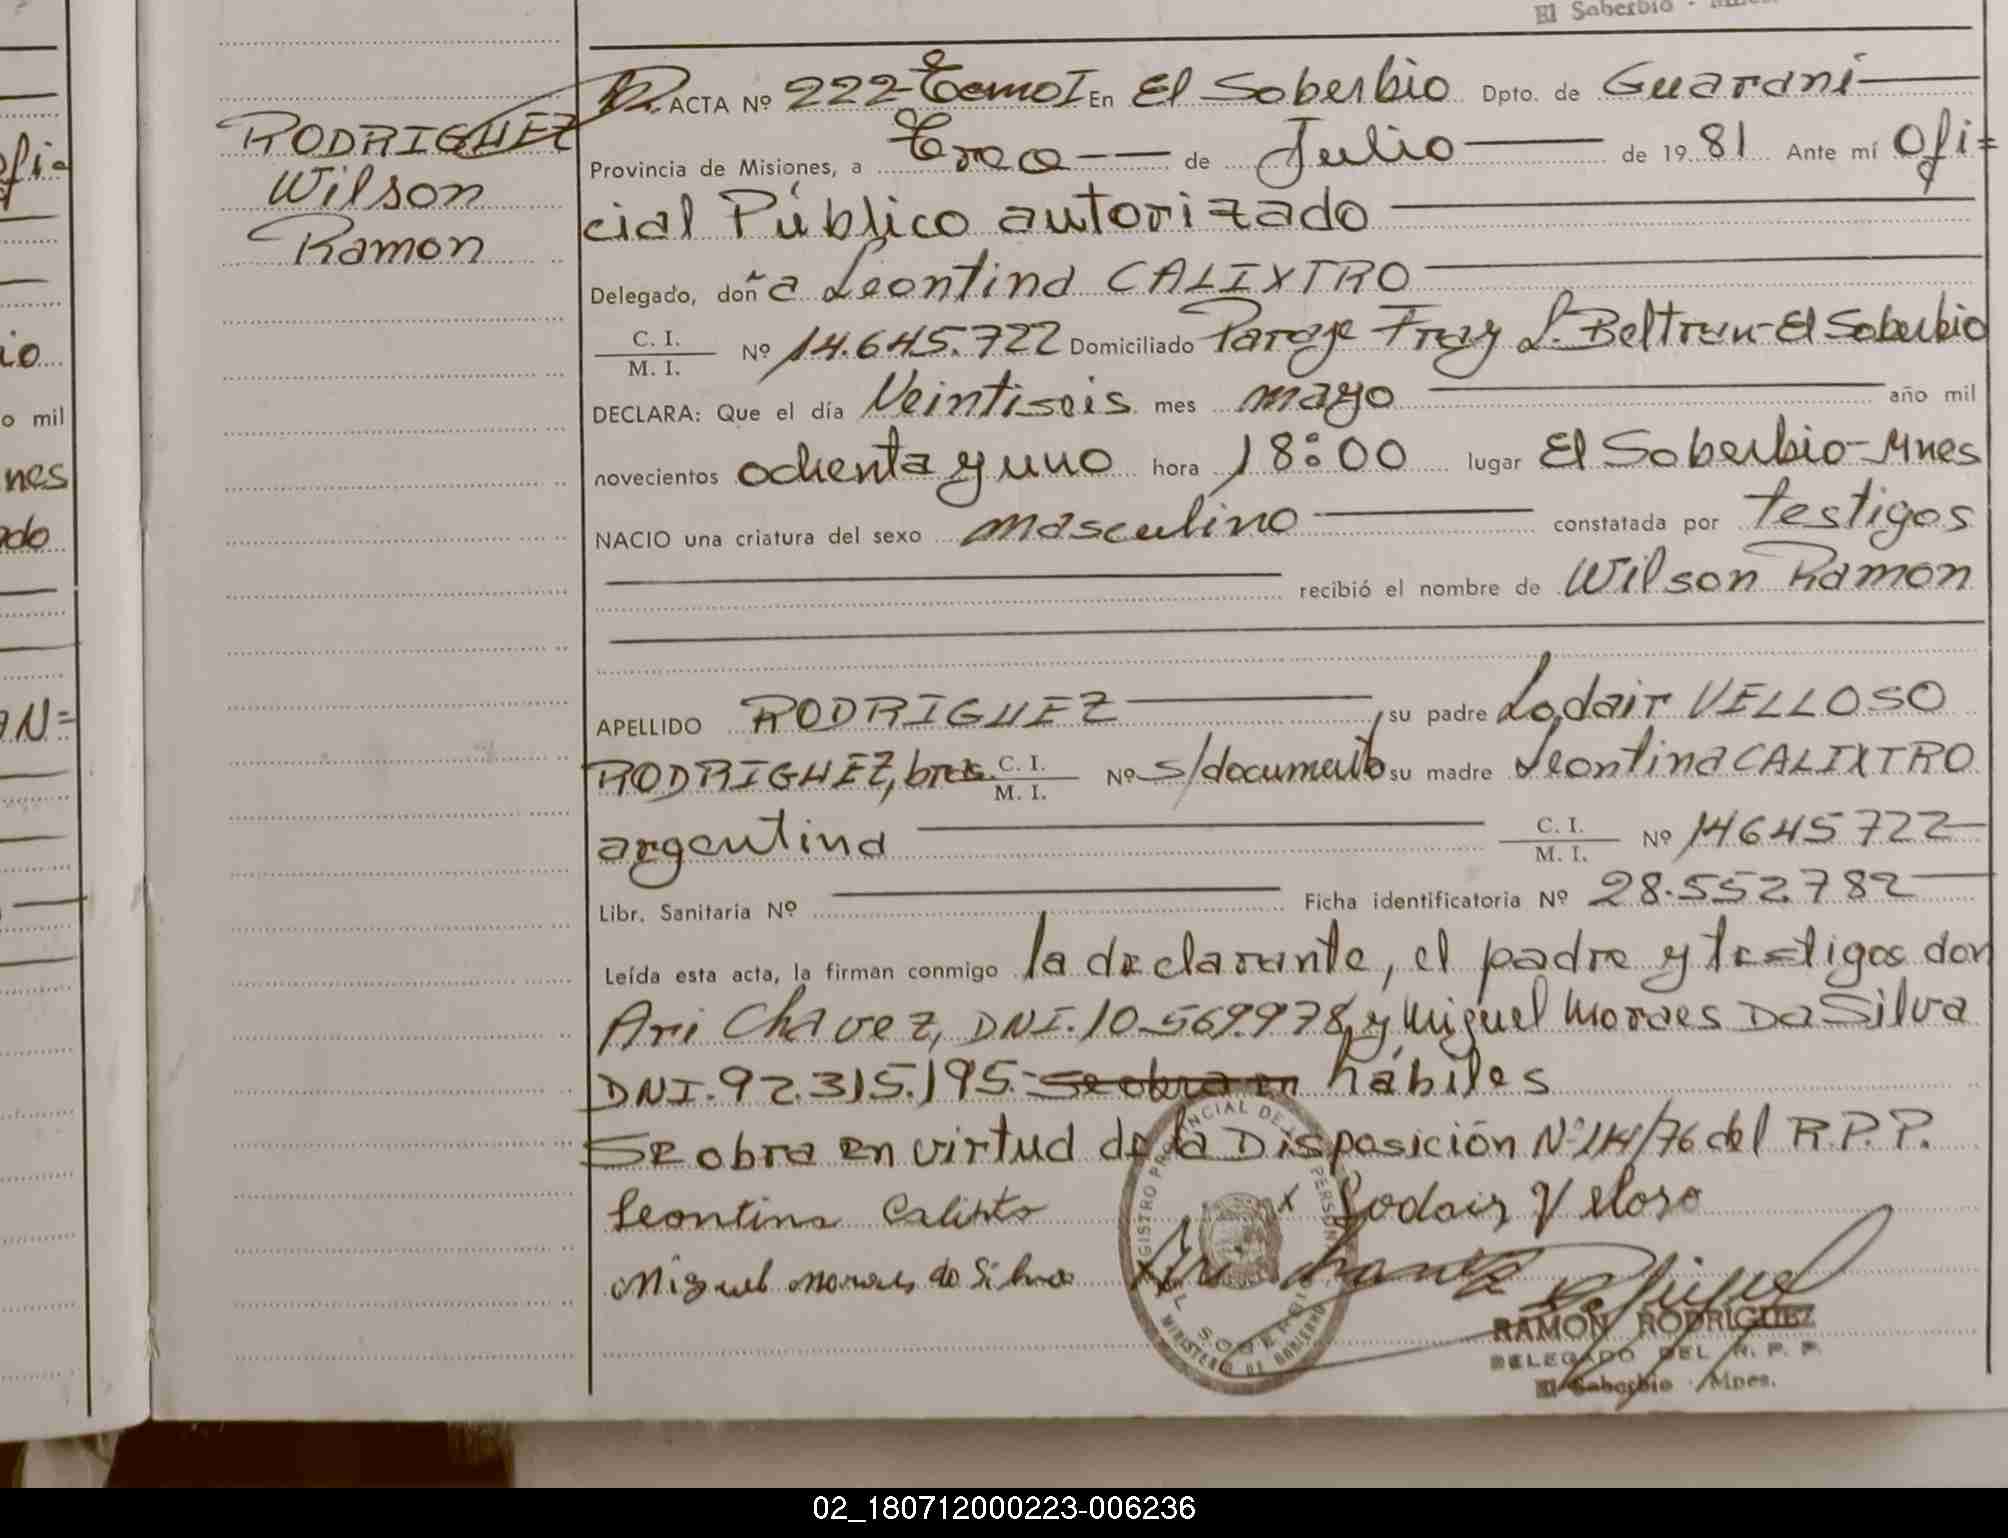 El Soberbio - Mnes.
RODRIGUEZ
Wilson
Ramon
ACTA Nº 222 Tomo I En El Soberbio Dpto. de Guaraní
Provincia de Misiones, a Trece de Julio de 1981 Ante mí Ofi=
cial Público autorizado
Delegado, doña Leontina CALIXTRO
C. I.
M. I. Nº 14.645.722 Domiciliado Paraje Fray L. Beltran-El Soberbio
DECLARA: Que el día Veintiseis mes mayo año mil
novecientos ochenta y uno hora 18:00 lugar El Soberbio-Mnes
NACIO una criatura del sexo masculino constatada por testigos
recibió el nombre de Wilson Ramon
APELLIDO RODRIGUEZ, su padre Lodair VELLOSO
RODRIGUEZ, bras. C. I.
M. I. Nº s/documento su madre Leontina CALIXTRO
argentina C. I.
M. I. Nº 14645722
Libr. Sanitaria Nº Ficha identificatoria Nº 28.552.782
Leída esta acta, la firman conmigo la declarante, el padre y testigos don
Ari Chavez, DNI.10.569.978, y Miguel Moraes Da Silva
DNI.92.315.195.- se obra en hábiles
Se obra en virtud de la Disposición Nº 114/76 del R.P.P.
Leontina Calixto x Lodair Veloso
Miguel Moraes da Silva
RAMON RODRIGUEZ
DELEGADO DEL R. P. P.
El Soberbio - Mnes.
fi=
io
o mil
nes
ado
N=
02_180712000223-006236